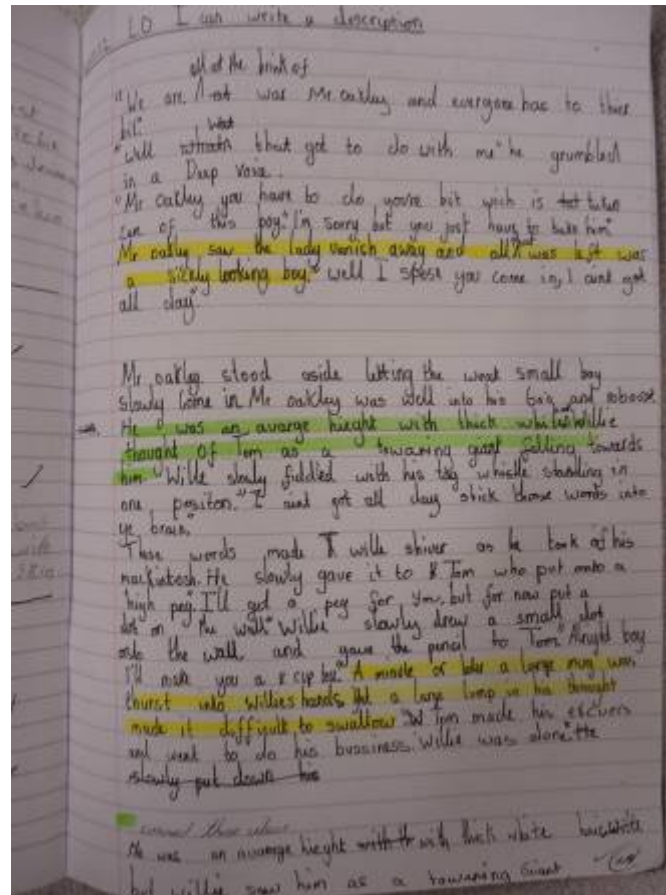 LO I can write a description
all at the brink of
"We are at war Mr oakley and everyone has to thier
bit."
"Well what that got to do with me" he grumbled
in a Deep voice.
"Mr oakley you have to do youre bit wich is taken
care of this boy." I'm sorry but you just have to take him."
Mr oakley saw the lady vanish away and all was left was
a sickly looking boy." well I spose you come in, I aint got
all day"
Mr oakley stood aside letting the weat small boy
slowly come in Mr oakley was well into his 60s and
He was an avarge hieght with thick white Willie
thought of Tom as a towaring giant falling towards
him. Willie slowly fiddled with his tag whistle standing in
one positon. "I aint got all day stick those words into
ye brain."
These words made willie shiver as he took of his
mackintosh. He slowly gave it to Tom who put onto a
high peg. I'll get a peg for you, but for now put a
dot on the wall" Willie slowly drew a small dot
onto the wall and gave the pencil to Tom" Alright boy
I'll make you a cup
A minute or later a large mug was
thurst into Willies hands but a large lump in his throught
made it difficult to swallow Tom made his excuers
and went to do his bussiness. Willie was alone. He
slowly put down his
He was an avarage hieght with thick white hair
but willie saw him as a towaring giant.